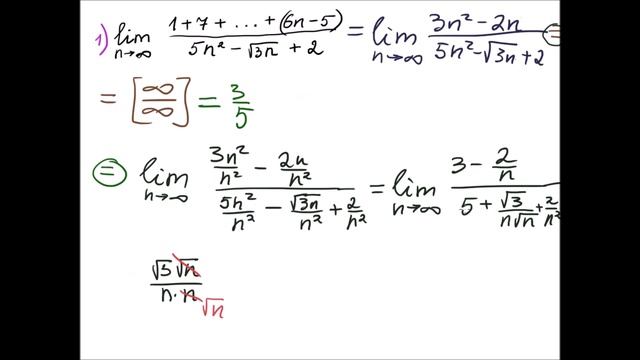 1) lim n→∞ (1+7+...+(6n-5))/(5n² - √3n + 2) = lim n→∞ (3n² - 2n)/(5n² - √3n + 2) =
= [∞/∞] = 3/5
= lim n→∞ (3n²/n² - 2n/n²)/(5n²/n² - √3n/n² + 2/n²) = lim n→∞ (3 - 2/n)/(5 + √3/(n√n) + 2/n²)
√3√n/(n·n) √n